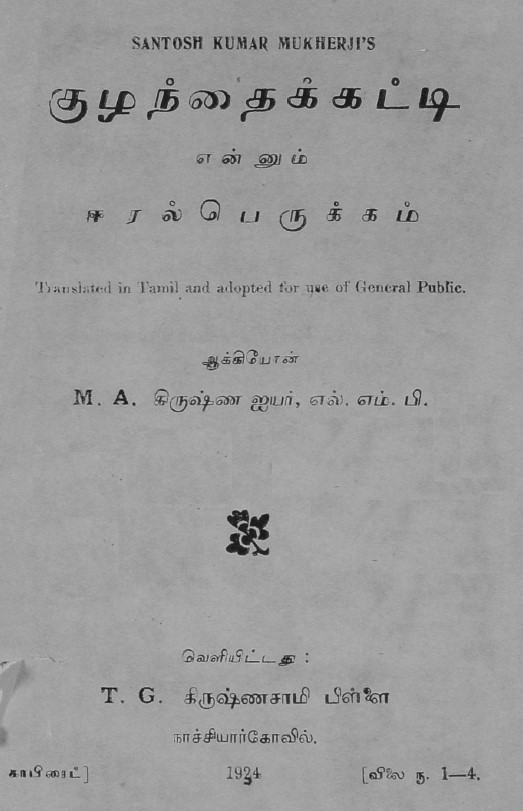 SANTOSH KUMAR MUKHERJI'S
குழந்தைக்கட்டி
என்னும்
ஈரல்பெருக்கம்
Translated in Tamil and adopted for use of General Public.
ஆக்கியோன்
M. A. கிருஷ்ண ஐயர், எல். எம். பி.
வெளியிட்டது :
T. G. கிருஷ்ணசாமி பிள்ளை
நாச்சியார்கோவில்.
காபிரைட்] 1924 [விலை ரூ. 1—4.